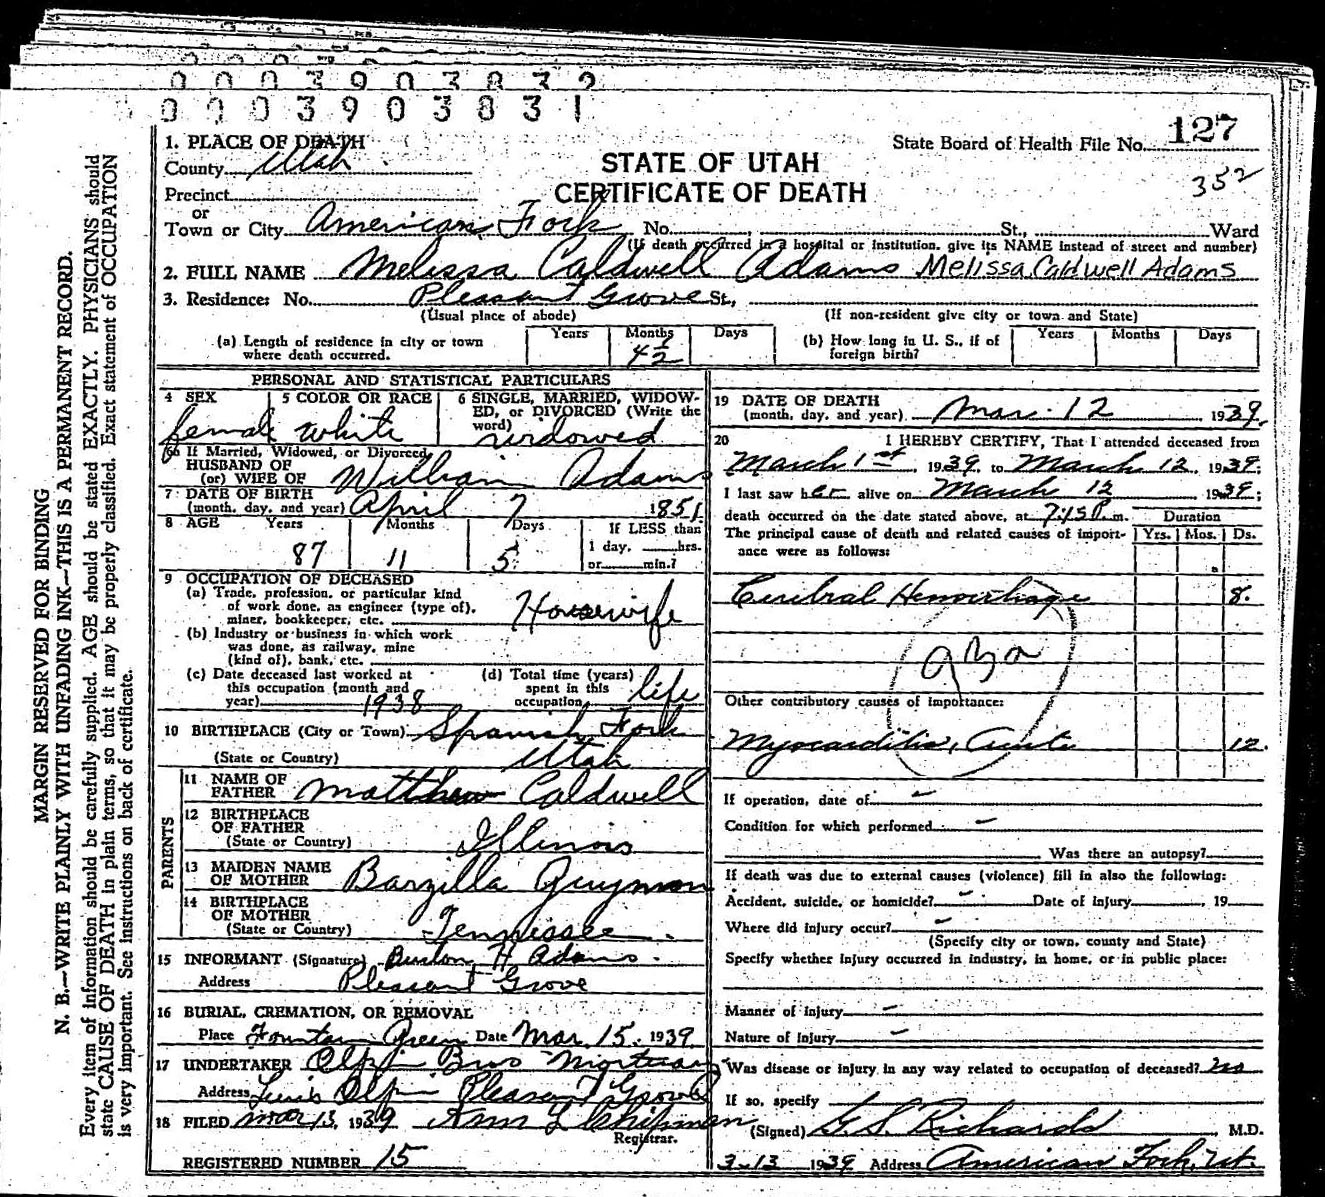 0003903832
0003903831
MARGIN RESERVED FOR BINDING
N. B.—WRITE PLAINLY WITH UNFADING INK—THIS IS A PERMANENT RECORD.
Every item of information should be carefully supplied. AGE should be stated EXACTLY. PHYSICIANS should
state CAUSE OF DEATH in plain terms, so that it may be properly classified. Exact statement of OCCUPATION
is very important. See instructions on back of certificate.
State Board of Health File No. 127
352
STATE OF UTAH
CERTIFICATE OF DEATH
1. PLACE OF DEATH
County Utah
Precinct
or
Town or City American Fork No. St., Ward
(If death occurred in a hospital or institution, give its NAME instead of street and number)
2. FULL NAME Melissa Caldwell Adams Melissa Caldwell Adams
3. Residence: No. Pleasant Grove St.,
(Usual place of abode) (If non-resident give city or town and State)
(a) Length of residence in city or town where death occurred. Years Months 4½ Days
(b) How long in U. S., if of foreign birth? Years Months Days
PERSONAL AND STATISTICAL PARTICULARS
4 SEX female
5 COLOR OR RACE white
6 SINGLE, MARRIED, WIDOWED, or DIVORCED (Write the word) widowed
6a If Married, Widowed, or Divorced
HUSBAND OF
(or) WIFE OF William Adams
7 DATE OF BIRTH
(month, day, and year) April 7 1851
8 AGE Years 87 Months 11 Days 5 If LESS than
1 day, hrs.
or min.?
9 OCCUPATION OF DECEASED
(a) Trade, profession, or particular kind
of work done, as engineer (type of),
miner, bookkeeper, etc. Housewife
(b) Industry or business in which work
was done, as railway, mine
(kind of), bank, etc.
(c) Date deceased last worked at
this occupation (month and
year) 1938
(d) Total time (years)
spent in this
occupation life
10 BIRTHPLACE (City or Town) Spanish Fork
(State or Country) Utah
PARENTS
11 NAME OF
FATHER Matthew Caldwell
12 BIRTHPLACE
OF FATHER
(State or Country) Illinois
13 MAIDEN NAME
OF MOTHER Barzilla Guymon
14 BIRTHPLACE
OF MOTHER
(State or Country) Tennessee
15 INFORMANT (Signature) H Adams
Address Pleasant Grove
16 BURIAL, CREMATION, OR REMOVAL
Place Fountain Green Date Mar. 15, 1939
17 UNDERTAKER Olpin Bros Mortuary
Address Olpin Pleasant Grove
18 FILED Mar 13, 1939 Ann L Chipman
Registrar.
REGISTERED NUMBER 15
19 DATE OF DEATH
(month, day, and year) Mar. 12 1939
20 I HEREBY CERTIFY, That I attended deceased from
March 1st, 1939 to March 12, 1939;
I last saw her alive on March 12 1939;
death occurred on the date stated above, at P. m. Duration
The principal cause of death and related causes of importance were as follows: Yrs. Mos. Ds.
Cerebral Hemorrhage 8.
Other contributory causes of importance:
Myocarditis, Acute 12.
If operation, date of –
Condition for which performed –
Was there an autopsy?
If death was due to external causes (violence) fill in also the following:
Accident, suicide, or homicide? – Date of injury , 19
Where did injury occur? –
(Specify city or town, county and State)
Specify whether injury occurred in industry, in home, or in public place:
Manner of injury –
Nature of injury –
Was disease or injury in any way related to occupation of deceased? no
If so, specify
(Signed) G. S. Richards, M.D.
3-13 1939 Address American Fork, Ut.